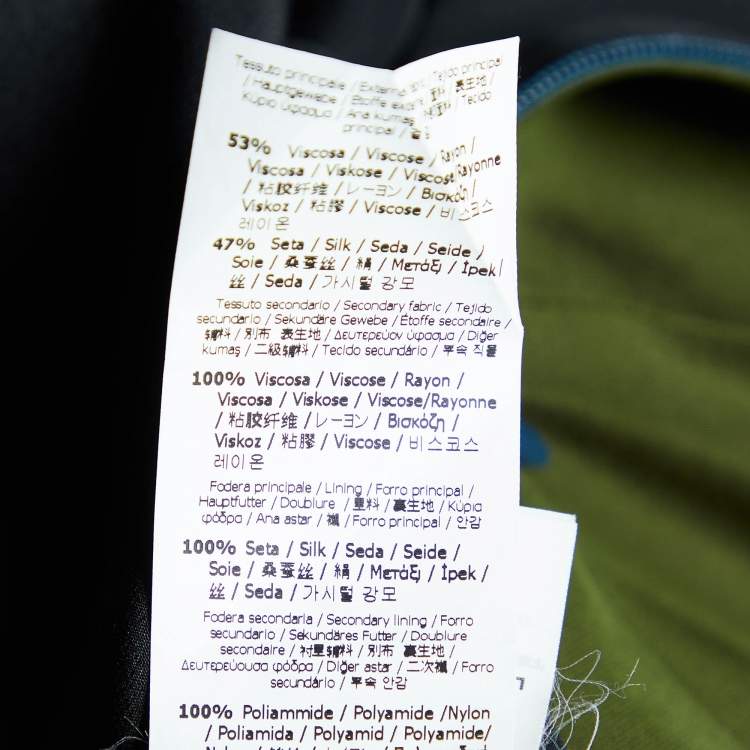 Tessuto principale / External / Tejido principal
/ Hauptgewebe / Étoffe / 表生地 /
Κύριο ύφασμα / Ana kumaş / Tecido
principal /
53% Viscosa / Viscose / Rayon /
Viscosa / Viskose / Viscose/Rayonne
/ 粘胶纤维 / レーヨン / Βισκόζη /
Viskoz / 粘膠 / Viscose / 비스코스
레이온
47% Seta / Silk / Seda / Seide /
Soie / 桑蚕丝 / 絹 / Μετάξι / İpek/
丝 / Seda / 가시털 강모
Tessuto secondario / Secondary fabric / Tejido
secundario / Sekundäre Gewebe / Étoffe secondaire /
辅料 / 別布 表生地 / Δευτερεύον ύφασμα / Diğer
kumaş / 二級輔料 / Tecido secundário / 부속 직물
100% Viscosa / Viscose / Rayon /
Viscosa / Viskose / Viscose/Rayonne
/ 粘胶纤维 / レーヨン / Βισκόζη /
Viskoz / 粘膠 / Viscose / 비스코스
레이온
Fodera principale / Lining / Forro principal /
Hauptfutter / Doublure / 里料 / 裏生地 / Κύρια
φόδρα / Ana astar / 襯 / Forro principal / 안감
100% Seta / Silk / Seda / Seide /
Soie / 桑蚕丝 / 絹 / Μετάξι / İpek /
丝 / Seda / 가시털 강모
Fodera secondaria / Secondary lining / Forro
secundario / Sekundäres Futter / Doublure
secondaire / 衬里辅料 / 別布 裏生地 /
Δευτερεύουσα φόδρα / Diğer astar / 二次襯 / Forro
secundário / 부속 안감
100% Poliammide / Polyamide /Nylon
/ Poliamida / Polyamid / Polyamide/